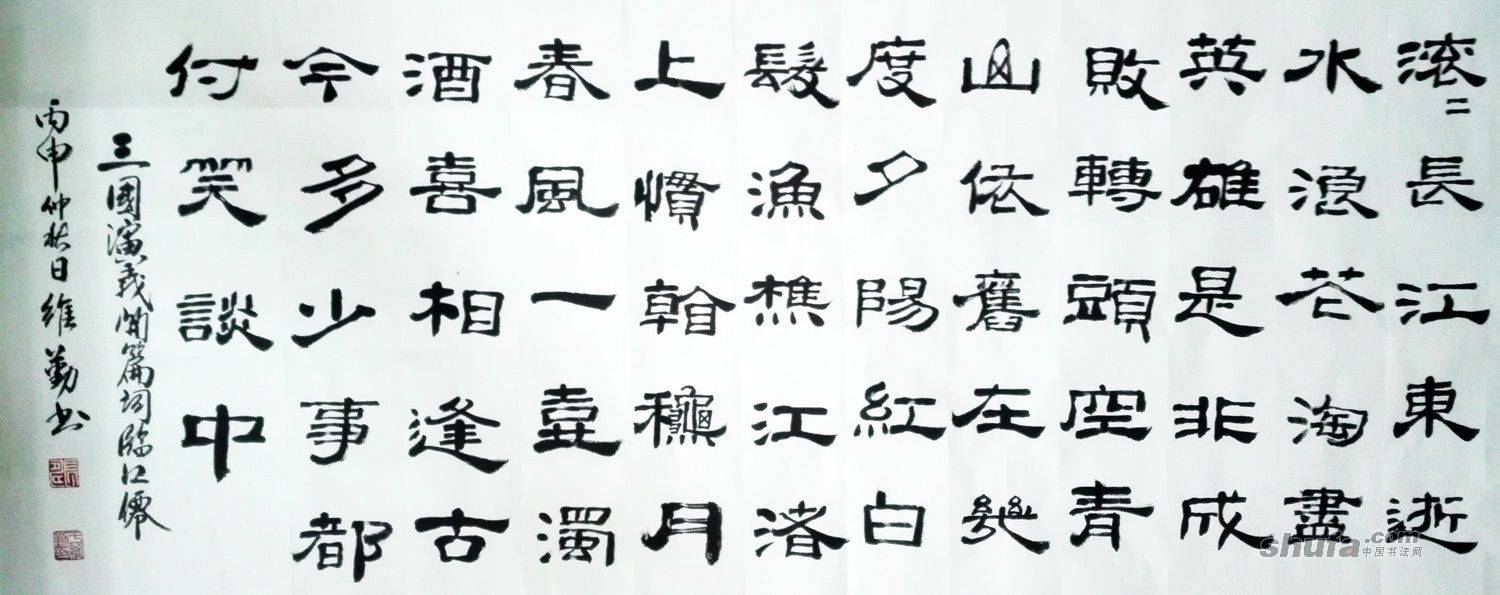 滚〻長江東逝
水浪花淘盡
英雄是非成
敗轉頭空青
山依舊在幾
度夕陽紅白
髮漁樵江渚
上慣看龝月
春風一壺濁
酒喜相逢古
今多少事都
付笑談中
三國演義開篇詞臨江僊
丙申仲秋日維勤书
shufa.com
中国书法网